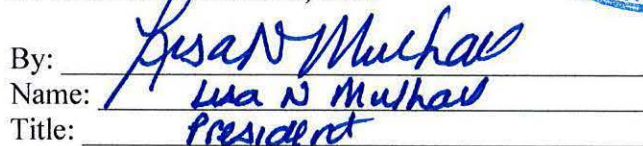 By: Lisa N Mulhall
Name: Lisa N Mulhall
Title: President